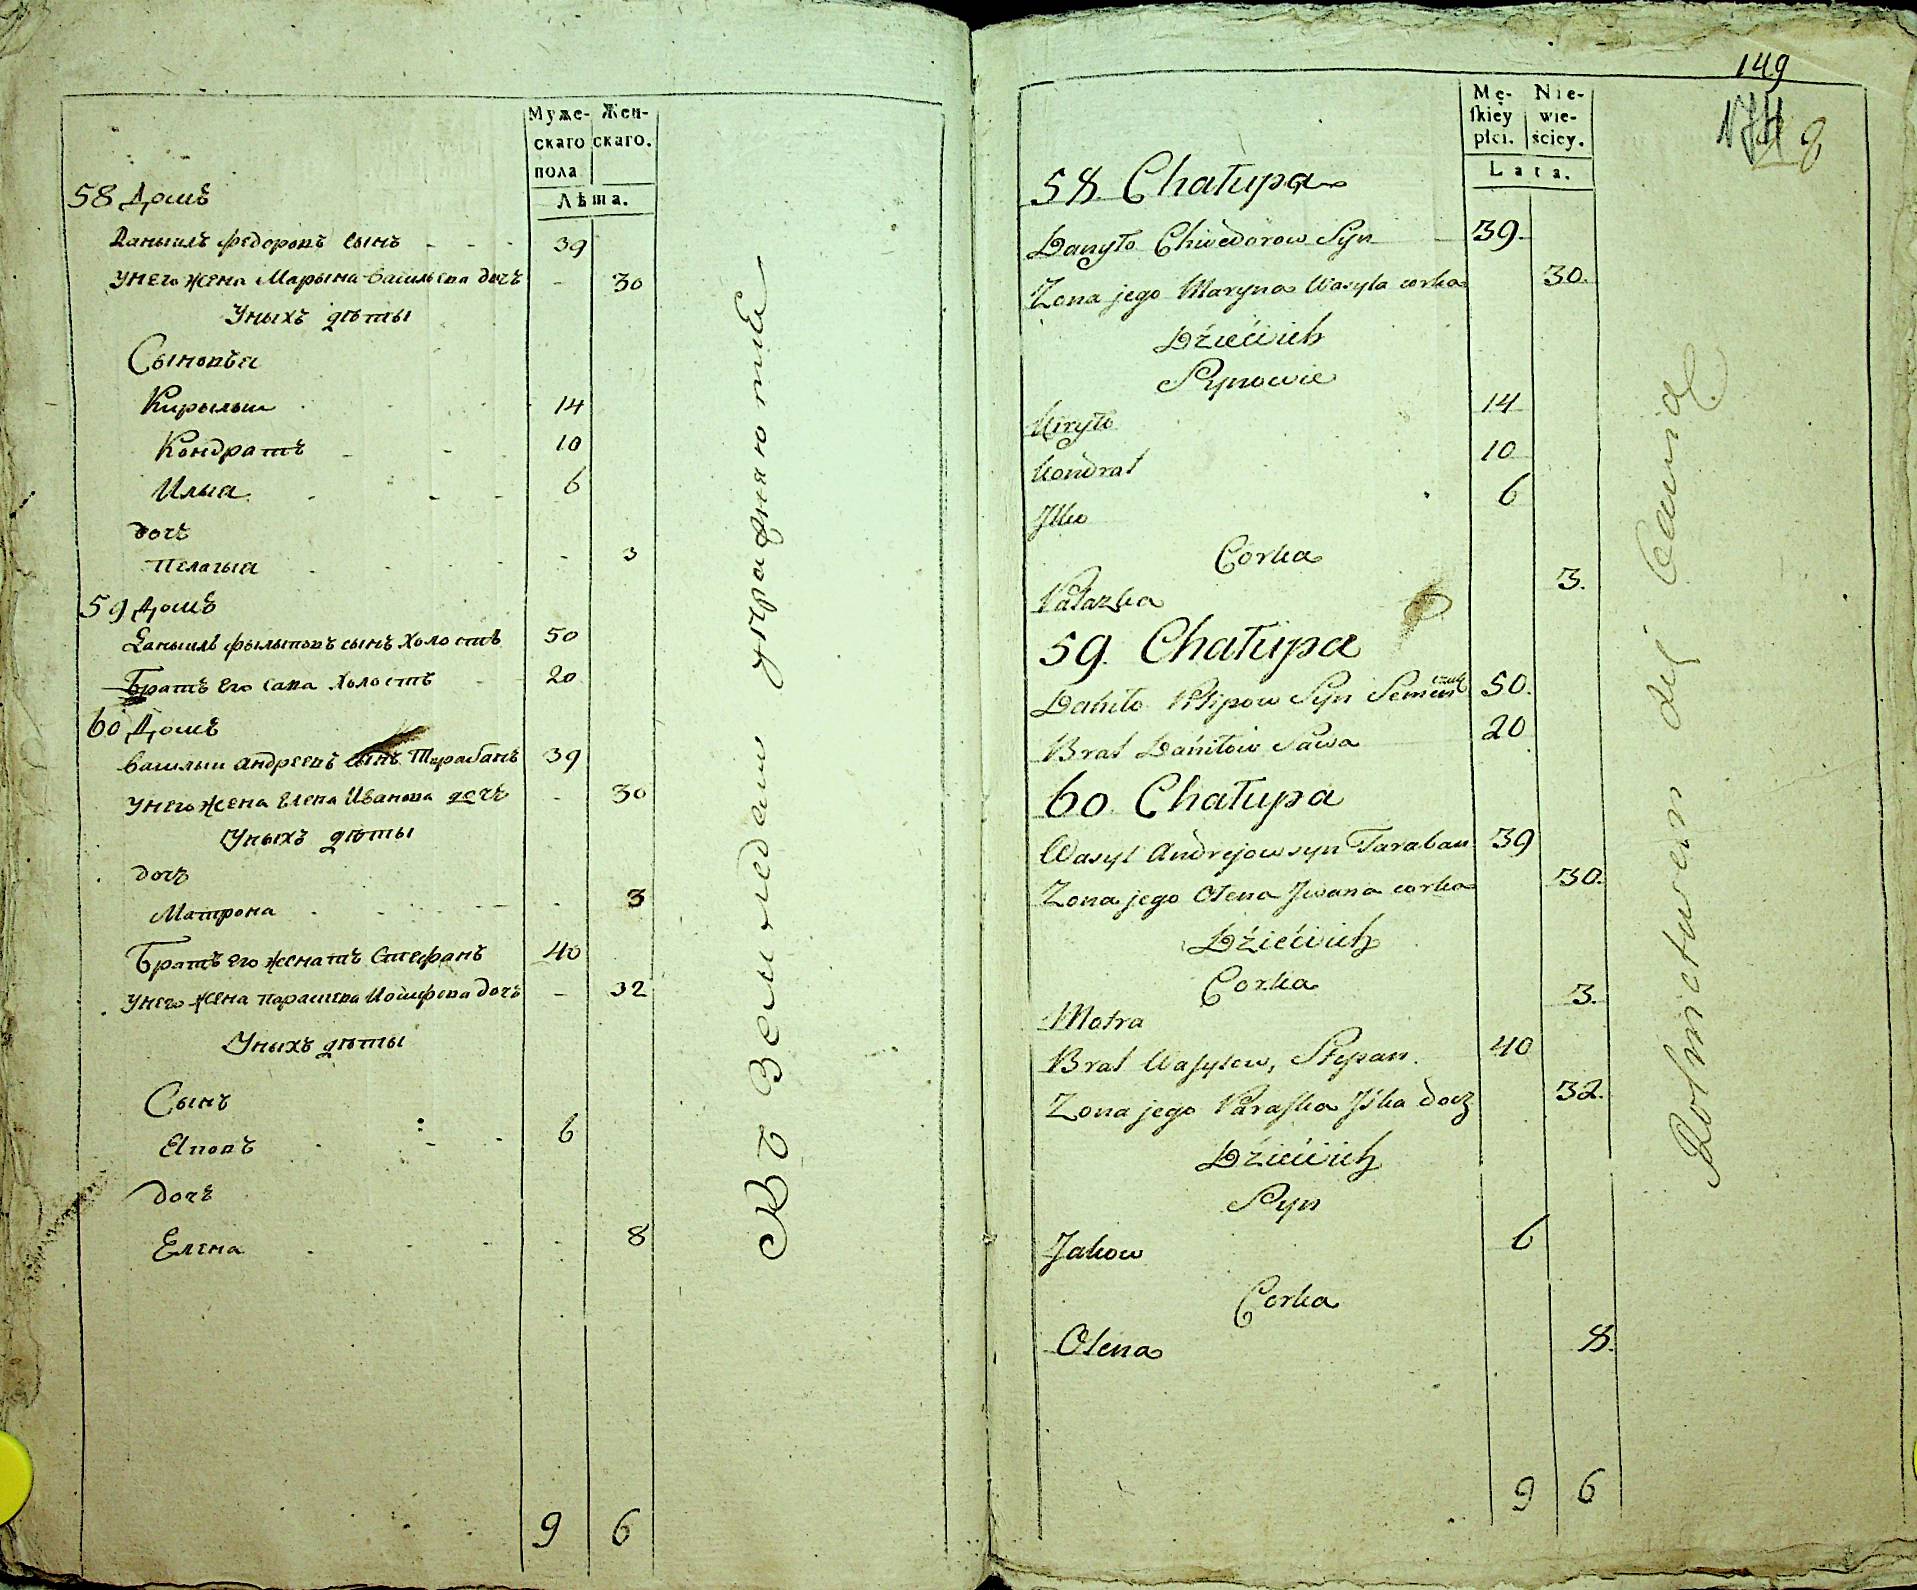 Муже- Жен-
скаго скаго.
пола
Лѣта.
58 Домъ
Даныилъ Федоровъ сынъ - - - 39
унего жена Марына Васильева дочъ - 30
Уныхъ дѣты
Сыновъя
Кирылы 14
Кондратъ - - 10
Илыя - - 6
дочъ
Пелагыя - 3
59 Домъ
Даныилъ Фылыповъ сынъ холостъ 50
Братъ его Сава холостъ - 20
60 Домъ
Василыи Андреевъ сынъ Тарабанъ 39
унего жена Елена Иванова дочъ - 30
Уныхъ дѣты
дочъ
Матрона - 3
Братъ его женатъ Стефанъ 40
унего жена Парасковa Иосифова дочъ - 32
Уныхъ дѣты
Сынъ
Яковъ - - 6
дочъ
Елена - - 8
9 6
Въ Земледелии упражняются
149
Mę- Nie-
skiey wie-
płci. ściey.
Lata.
58. Chałupa
Danyło Chwedorow Syn 39.
Zona jego Maryna Wasyla corka 30.
Dźieći ich
Synowie
Kiryło 14
Kondrat 10
Jlko 6
Corka
Pałazka 3.
59. Chałupa
Daniło Pilipow Syn 50.
Brat Daniłow Sawa 20
60 Chałupa
Wasyl Andrejow syn Taraban 39
Zona jego Olena Jwana corka 30.
Dźieći ich
Corka
Motra 3.
Brat Wasylew, Stepan. 40
Zona jego Paraska Jśka docz 32.
Dźieći ich
Syn
Jakow 6
Corka
Olena 8.
9 6
Rolnictwem się